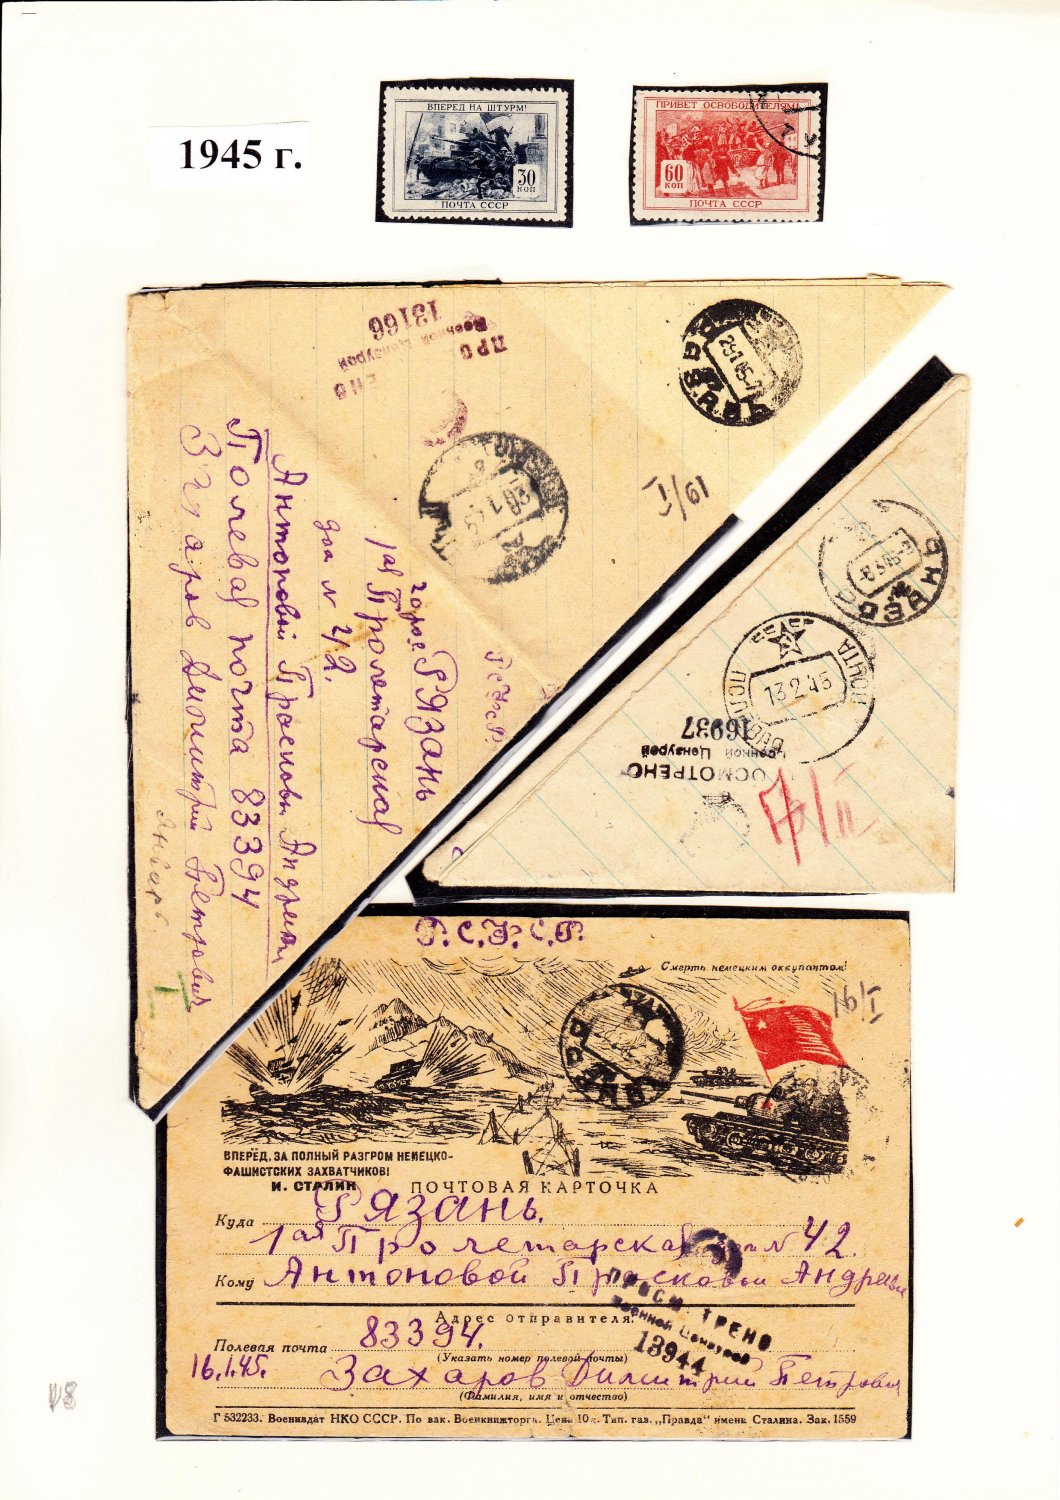 1945 г.
ВПЕРЕД НА ШТУРМ!
30
КОП
ПОЧТА СССР
ПРИВЕТ ОСВОБОДИТЕЛЯМ!
60
КОП
ПОЧТА СССР
13166
Военной Цензурой
ПРО
I/61
Р.С.Ф.С.Р.
город РЯЗАНЬ
1ая Пролетарская
дом N 42.
Антоновой Прасковьи Андреевны
Полевая почта 83394
Захаров Димитрий Петрович
Январь
I
РЯЗАНЬ
-8 3 45
ПОЧТА
13 2 45
16937
Военной Цензурой
ОСМОТРЕНО
Р.С.Ф.С.Р.
Смерть немецким оккупантам!
16/I
ВПЕРЁД, ЗА ПОЛНЫЙ РАЗГРОМ НЕМЕЦКО-
ФАШИСТСКИХ ЗАХВАТЧИКОВ!
И. СТАЛИН
ПОЧТОВАЯ КАРТОЧКА
Куда Рязань.
1ая Пролетарская дом N 42.
Кому Антоновой Прасковьи Андреевы
ПРОСМОТРЕНО
Военной Цензурой
13944
Адрес отправителя:
Полевая почта 83394.
(Указать номер полевой почты)
16.1.45. Захаров Димитрий Петрович
(Фамилия, имя и отчество)
Г 532233. Воениздат НКО СССР. По зак. Военкнижторга. Цена 10 к. Тип. газ. „Правда" имени Сталина. Зак. 1559